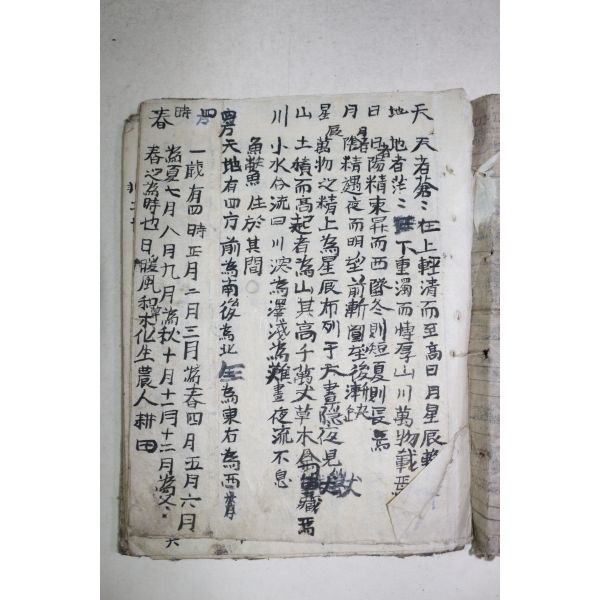 天 天者蒼〻在上輕清而至高日月星辰
地 地者茫〻在下重濁而博厚山川萬物載焉
日 日者陽精東昇而西墜冬則短夏則長焉
月 月者陰精遇夜而明望前漸圓望後漸缺
星辰 萬物之精上為星辰布列于天晝隱夜見
山 土積而高起者為山其高千萬丈草木禽獸藏焉
川 小水合流曰川深為澤淺為灘晝夜流不息
魚鱉魚住於其間
四方 天地有四方前為南後為北左為東右為西
四時 一歲有四時正月二月三月為春四月五月六月
為夏七月八月九月為秋十月十一月十二月為冬
春 春之為時也日暖風和草木化生農人耕田